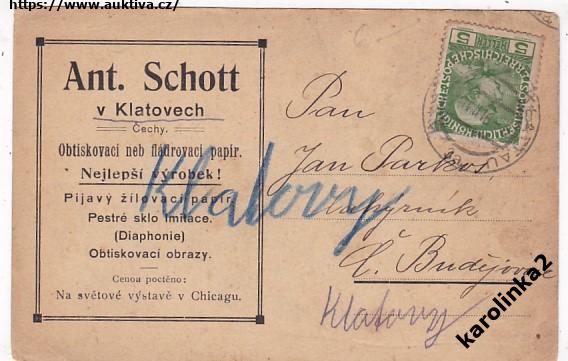 https://www.auktiva.cz/
Ant. Schott
v Klatovech
Čechy.
Obtiskovací neb fládrovací papír.
Nejlepší výrobek!
Pijavý žilovací papír.
Pestré sklo imitace.
(Diaphonie)
Obtiskovací obrazy.
Cenou poctěno:
Na světové výstavě v Chicagu.
Klatovy
5 HELLER 5
Pan
Jan Parkos,
Č. Budějovice
Klatovy
karolinka2